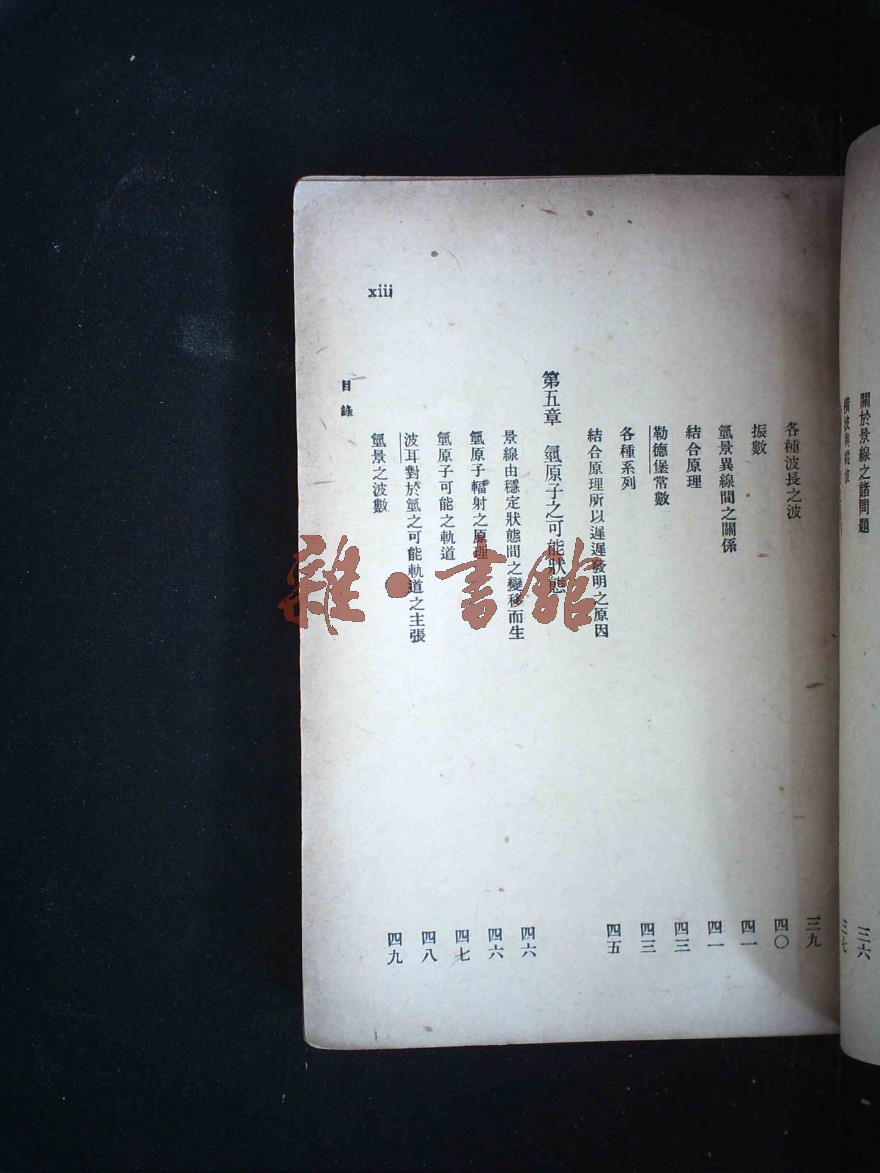 關於景線之諸問題 三六
橫波與縱波 三七
三九
各種波長之波 四〇
振數 四一
氫景異線間之關係 四一
結合原理 四三
勒德堡常數 四三
各種系列 四五
結合原理所以遲遲發明之原因
第五章 氫原子之可能狀態
景線由穩定狀態間之變移而生 四六
氫原子輻射之原理 四六
氫原子可能之軌道 四七
波耳對於氫之可能軌道之主張 四八
氫景之波數 四九
目錄
xiii
雜·書館